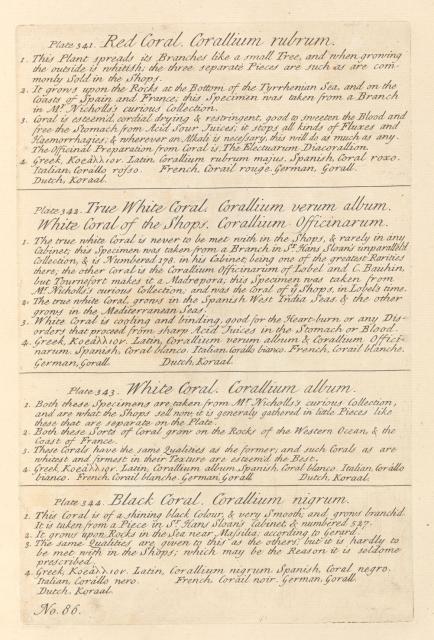 Plate 341. Red Coral. Corallium rubrum.
1. This Plant spreads its Branches like a small Tree, and when growing
the outside is whitish; the three separate Pieces are such as are com-
monly Sold in the Shops.
2. It grows upon the Rocks at the Bottom of the Tyrrhenian Sea, and on the
Coasts of Spain and France; this Specimen was taken from a Branch
in Mr. Nicholls's curious Collection.
3. Coral is esteem'd cordial drying & restringent, good to sweeten the Blood and
free the Stomach from Acid Sour Juices; it stops all kinds of Fluxes and
Hæmorrhagies; & wherever an Alkali is necessary, this will do as much as any.
The Officinal Preparation from Coral is, The Electuarium Diacorallion.
4. Greek, Κοράλλιον. Latin, Corallium rubrum majus. Spanish, Coral roxo.
Italian, Corallo rosso. French, Corail rouge. German, Gorall.
Dutch, Koraal.
Plate 342. True White Coral. Corallium verum album.
White Coral of the Shops. Corallium Officinarum.
1. The true white Coral is never to be met with in the Shops, & rarely in any
Cabinet; this Specimen was taken from a Branch in Sr. Hans Sloan's unparallel'd
Collection, & is Numbered 178. in his Cabinet; being one of the greatest Rarities
there; the other Coral is the Corallium Officinarum of Lobel and C. Bauhin,
but Tournfort makes it a Madrepora; this Specimen was taken from
Mr. Nicholls's curious Collection; and was the Coral of ye Shops, in Lobel's time.
2. The true white Coral, grows in the Spanish West India Seas, & the other
grows in the Mediterranean Seas.
3. White Coral is cooling and binding, good for the Heart-burn or any Dis-
orders that proceed from sharp Acid Juices in the Stomach or Blood.
4. Greek, Κοράλλιον. Latin, Corallium verum album & Corallium Offici-
narum. Spanish, Coral blanco. Italian, Corallo bianco. French, Corail blanche.
German, Gorall. Dutch, Koraal.
Plate 343. White Coral. Corallium album.
1. Both these Specimens are taken from Mr. Nicholls's curious Collection,
and are what the Shops sell now; it is generaly gathered in little Pieces like
these that are separate on the Plate.
2. Both these Sorts of Coral grow on the Rocks of the Western Ocean, & the
Coast of France.
3. These Corals have the same Qualities as the former; and such Corals as are
whitest and firmest in their Texture are esteem'd the Best.
4. Greek, Κοράλλιον. Latin, Corallium album. Spanish, Coral blanco. Italian, Corallo
bianco. French, Corail blanche. German, Gorall. Dutch, Koraal.
Plate 344. Black Coral. Corallium nigrum.
1. This Coral is of a shining black Colour, & very Smooth; and grows branch'd.
It is taken from a Piece in Sr. Hans Sloan's Cabinet, & numbered 527.
2. It grows upon Rocks in the Sea near Massilia; according to Gerard.
3. The same Qualities are given to this as the others; but it is hardly to
be met with in the Shops; which may be the Reason it is seldome
prescribed.
4. Greek, Κοράλλιον. Latin, Corallium nigrum. Spanish, Coral negro.
Italian, Corallo nero. French, Corail noir. German, Gorall.
Dutch, Koraal.
No. 86.